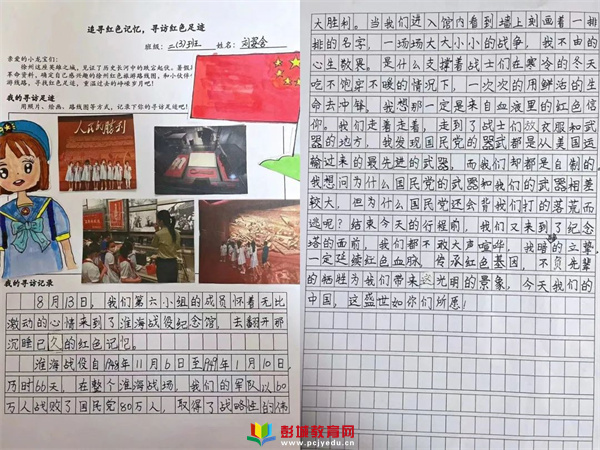 追寻红色记忆，寻访红色足迹
班级：二(3)班 姓名：刘晏含
亲爱的小龙宝们：
徐州这座英雄之城，见证了历史长河中的跌宕起伏。暑假
革命资料，确定自己感兴趣的徐州红色旅游路线图，和小伙伴
寻找红色足迹，重温过去的峥嵘岁月吧！
我的寻访足迹
用照片、绘画、路线图等方式，记录下你的寻访足迹吧！
人民的胜利
我的寻访记录
8月13日，我们第六小组的成员怀着无比
激动的心情来到了淮海战役纪念馆，去翻开那
沉睡已久的红色记忆。
淮海战役自1948年11月6日至1949年1月10日，
历时66天，在整个淮海战场，我们的军队以60
万人战败了国民党80万人，取得了战略性的伟
大胜利。当我们进入馆内看到墙上刻画着一排
排的名字，一场场大大小小的战争，我不由的
心生敬畏，是什么支撑着战士们在寒冷的冬天
吃不饱穿不暖的情况下，一次次的用鲜活的生
命去冲锋，我想那一定是来自血液里的红色信
仰。我们走着走着，走到了战士们放衣服和武
器的地方，我发现国民党的武器都是从美国运
输过来的最先进的武器，而我们却都是自制的，
我想问为什么国民党的武器和我们的武器相差
较大，但为什么国民党还会背我们打的落荒而
逃呢？结束今天的行程前，我们又来到了纪念
塔的面前，我们都不敢大声喧哗，我暗暗立誓
一定延续红色血脉，传承红色基因，不负先辈
的牺牲为我们带来这光明的景象，今天我们的
中国，这盛世如你们所愿！
彭城教育网
www.pcjyedu.cn